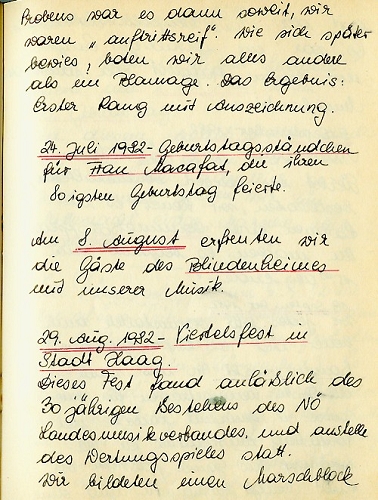 Probens war es dann soweit, wir
waren "auftrittsreif". Wie sich später
bewies, boten wir alles andere
als ein Blamage. Das Ergebnis:
Erster Rang mit Auszeichnung.
24. Juli 1982 - Geburtstagsständchen
für Frau Macafat, die ihren
80igsten Geburtstag feierte.
Am 8. August erfreuten wir
die Gäste des Blindenheimes
mit unserer Musik.
29. Aug. 1982 - Viertelsfest in
Stadt Haag.
Dieses Fest fand anläßlich des
30 jährigen Bestehens des NÖ
Landesmusikverbandes, und anstelle
des Wertungsspieles statt.
Wir bildeten einen Marschblock